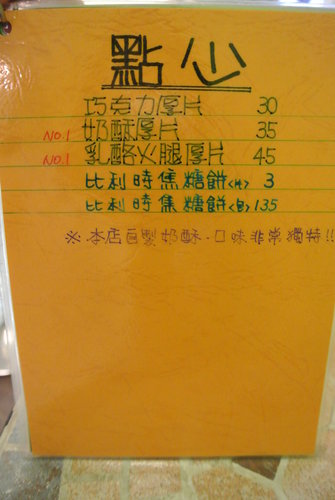 點心
巧克力厚片 30
NO.1 奶酥厚片 35
NO.1 乳酪火腿厚片 45
比利時焦糖餅<片> 3
比利時焦糖餅<包> 135
※本店自製奶酥.口味非常獨特!!